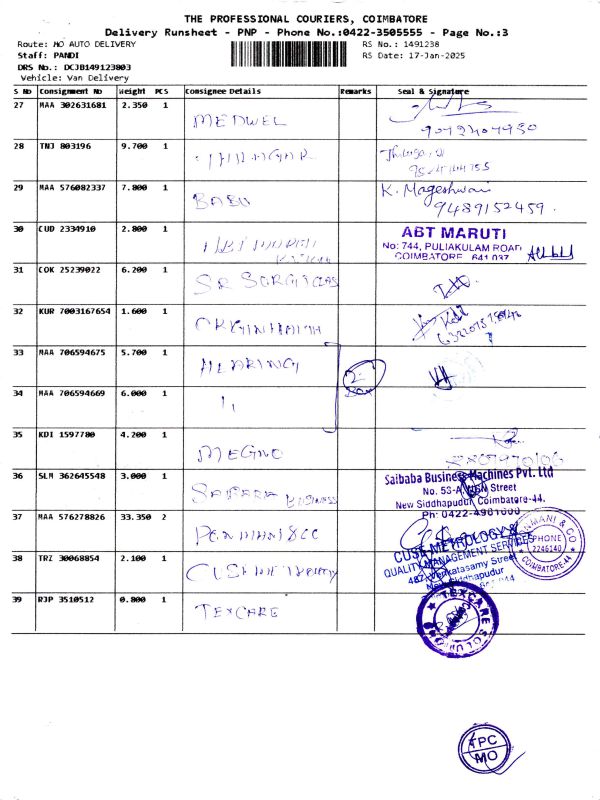 THE PROFESSIONAL COURIERS, COIMBATORE
Delivery Runsheet - PNP - Phone No.:0422-3505555 - Page No.:3
Route: MO AUTO DELIVERY
RS No.: 1491238
Staff: PANDI
RS Date: 17-Jan-2025
DRS No.: DCJB149123803
Vehicle: Van Delivery
S No Consignment No Weight PCS Consignee Details Remarks Seal & Signature
27 MAA 302631681 2.350 1 MEDWEL
28 TNJ 803196 9.700 1
29 MAA 576082337 7.800 1 BABU K. Mageshwari
9489152459.
30 CUD 2334910 2.800 1 ABT MARUTI
No: 744, PULIAKULAM ROAD
COIMBATORE 641 037
31 COK 25239022 6.200 1 SR SURGICALS
32 KUR 7003167654 1.600 1
33 MAA 706594675 5.700 1 HEARING
34 MAA 706594669 6.000 1 11
35 KDI 1597780 4.200 1 MEGNO
36 SLM 362645548 3.000 1 BUSINESS
Saibaba Business Machines Pvt. Ltd
No. 53-A, Street
New Siddhapudur, Coimbatore-44.
Ph: 0422-4961000
37 MAA 576278826 33.350 2 PONMANI & CO
PONMANI & CO
PHONE
2246140
COIMBATORE-44
38 TRZ 30068854 2.100 1
CUSE METROLOGY &
QUALITY MANAGEMENT SERVICES
Venkatasamy Street
New Siddhapudur
39 RJP 3510512 0.800 1 TEXCARE
TEXCARE
TPC
MO